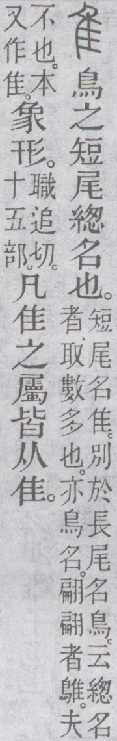 隹 鳥之短尾總名也。
短尾名隹。別於長尾名鳥。云總名
者、取數多也。亦鳥名。翩翩者鵻。夫
不也。本
又作隹。
象形。
職追切。
十五部。
凡隹之屬皆从隹。